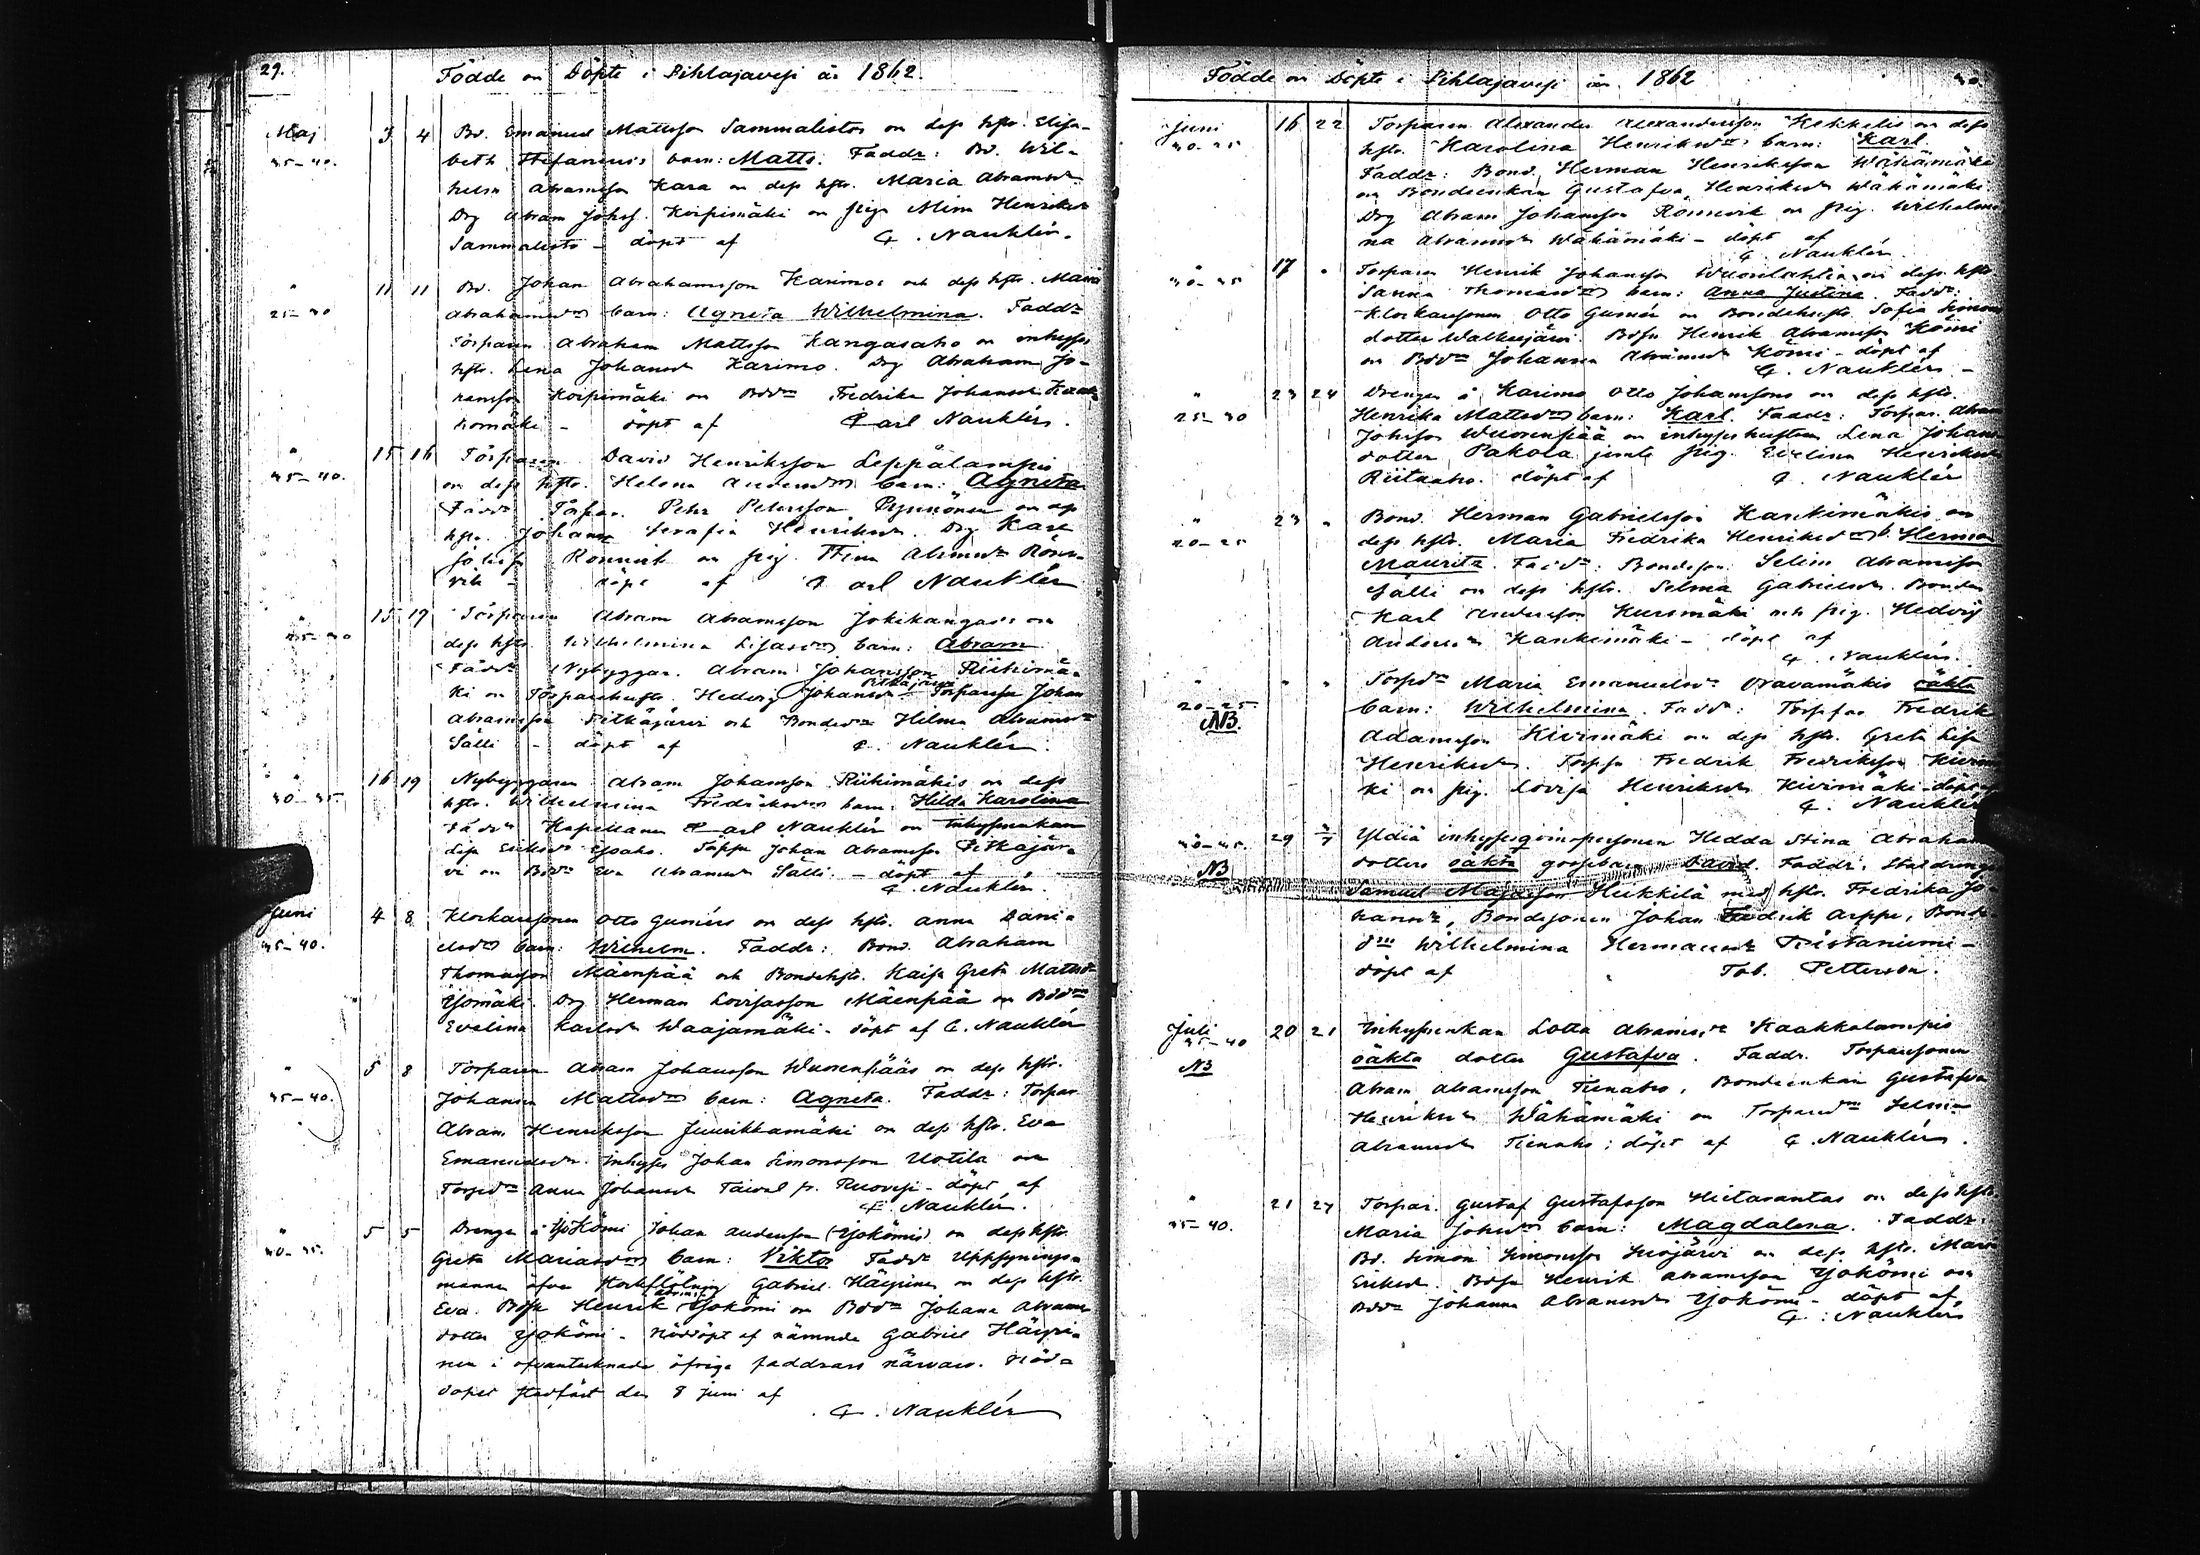 29.
Födde och Döpte i Pihlajavesi år 1862.
Maj 3 4 Bd. Emanuel Mattsson Sammalistos och dess hstr. Elisa-
35-40. beth Stefansius barn: Matts. Faddr: Bd. Wil-
helm Abramsson Kara och dess hstr. Maria Abramsdr
Drg Abram Johss. Korpimäki och pig. Mina Henriksdr
Sammalisto - döpt af C. Nauklér.
" 11 11 Bd. Johan Abrahamsson Karimos och dess hstr. Maria
25-30 Abrahamsdrs barn: Agneta Wilhelmina. Faddr
Torparen Abraham Mattsson Kangasaho och inhyses
hstr. Lena Johansdr Karimo. Drg Abraham Jo-
hansson Korpimäki och Bddr Fredrika Johansdr
komäki - döpt af Carl Nauklér.
" 15 16 Torparen David Henriksson Leppälampis
35-40. och dess hstr. Helena barn: Agneta
Faddr Torpar. Petter Petersson och dess
hstr. Johanna Serafia Henriksdr. Drg Karl
Johss Rönnvik och pig. Stina Abramsdr Rönn-
vik - döpt af Carl Nauklér
" 15 19 Torparen Abram Abramsson Jokikangas och
dess hstr. Wilhelmina barn: Abram
Faddr Nybyggar. Abram Johansson Riihimä-
Pitkäjärvi
ki och Torparehustr. Hedvig Johansdr Torparess Johan
Abramsson Pitkäjärvi och Bondedr Hilma Abramsdr
Sälli - döpt af C. Nauklér.
" 16 19 Nybyggaren Abram Johansson Riihimäkis och dess
30-35. hstr. Wilhelmina Fredriksdrs barn: Hilda Karolina
Faddr Kapellanen Carl Nauklér och inhysesenkan
Lisa Eriksdr. Torpss Johan Abramsson Pitkäjär-
vi och Bddr Eva Abramsdr Sälli. - döpt af
C. Nauklér.
Juni 4 8 Klockaresonen Otto Gumérs och dess hstr. Anna Dani-
35-40. elsdrs barn: Wilhelm. Faddr: Bond. Abraham
Thomasson Mäenpää och Bondehstr. Kaisa Greta Mattsdr
Yjomäki. Drg Herman Lovisasson Mäenpää och Bddr
Evelina Karlsdr Waajamäki - döpt af C. Nauklér
" 5 8 Torparen Abram Johansson Wuorenpääs och dess hstr.
35-40. Johanna Mattsdrs barn: Agneta. Faddr: Torpar.
Abram Henriksson Juurikkamäki och dess hstr. Eva
Emanuelsdr. Inhyses Johan Simonsson Uotila och
Torpdr Anna Johansdr Taival fr. Ruovesi - döpt af
C. Nauklér.
" 5 5 Drengen i Yjokömi Johan Andersson (Yjokömis) och dess hstr.
30-35. Greta Mariasdrs barn: Viktor Faddr Uppsynings-
mannen öfver Gabriel Häyrinen och dess hstr.
Abramss
Eva. Bdss Henrik Yjokömi och Bddr Johanna Abrams
dotter Yjokömi - Nöddöpt af nämnde Gabriel Häyri-
nen i ofvantecknade öfriga faddrars närvaro. Nöd-
dopet stadfäst den 8 juni af
C. Nauklér
Födde och Döpte i Pihlajavesi år 1862
30.
Juni 16 22 Torparen Alexander Alexandersson Kekkelis och dess
30-35 hstr. Karolina Henriksdrs barn: Karl.
Faddr: Bond. Herman Henriksson Wähämäki
och Bondeenkan Gustafva Henriksdr Wähämäki.
Drg Abram Johansson Rönnvik och pig. Wilhelmi-
na Abramsdr Wähämäki - döpt af
C. Nauklér.
" 17 " Torparen Henrik Johansson Wuorilahtis och dess hstr.
30-35 Sanna Thomasdrs barn: Anna Justina. Faddr:
Klockaresonen Otto Gumér och Bondehustr. Sofia Simons
dotter Walkeejärvi. Bdss Henrik Abramsson Kömi
och Bddr Johanna Abramsdr Kömi - döpt af
C. Nauklér. -
" 23 24 Drengen i Karimo Otto Johanssons och dess hstr.
25-30 Henrika Mattsdrs barn: Karl. Faddr: Torpar. Abram
Johsson Wuorenpää och inhyses hustrun Lena Johans-
dotter Pakola jemte pig. Evelina Henriksdr
Riitaaho. döpt af C. Nauklér
" 23 " Bond. Herman Gabrielsson Kankimäkis och
20-25 dess hstr. Maria Fredrika Henriksdrs b. Herman
Mauritz. Faddr: Bondeson. Selim Abramsson
Sälli och dess hstr. Selma Gabrielsdr. Bonden
Karl Andersson Kursmäki och pig. Hedvig
Andersdr Kankimäki - döpt af
C. Nauklér.
" " " Torpdr Maria Emanuelsdr Oravamäkis oäkta
20-25 barn: Wilhelmina. Fadd: Torpss Fredrik
NB. Adamsson Kivimäki och dess hstr. Greta Lisa
Henriksdr. Torpss Fredrik Fredriksson Kivimä-
ki och pig. Lovisa Henriksdr Kivimäki - döpt af
C. Nauklér
30-35. 29 inhysesqvinspersonen Hedda Stina Abrahams
NB dotters oäkta gossebarn David. Faddr: Staldreng
Samuel Majasson Heikkilä med hstr. Fredrika Jo-
hansdr, Bondesonen Johan Fredrik Arppe, Bonde-
dr Wilhelmina Hermansdr Tristaniemi -
döpt af Tob. Petterson.
Juli 20 21 Inhysesenkan Lotta Abramsdr Kaakkolampis
35-40 oäkta dotter Gustafva. Faddr. Torparesonen
NB Abram Abramsson Tienaho, Bondeenkan Gustafva
Henriksdr Wähämäki och Torparedr Selma
Abramsdr Tienaho; döpt af C. Nauklér.
" 21 27 Torpar. Gustaf Gustafsson Hietarantas och dess hstr.
35-40. Maria Johsdrs barn: Magdalena. Faddr.
Bd. Simon Simonsson och dess hstr. Maria
Eriksdr. Bdss Henrik Abramsson Yjokömi och
Bddr Johanna Abramsdr Yjokömi - döpt af
C. Nauklér